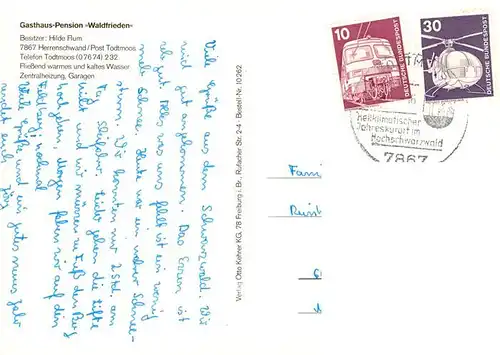 Gasthaus-Pension »Waldfrieden«
Besitzer: Hilde Flum
7867 Herrenschwand/Post Todtmoos
Telefon Todtmoos (0 76 74) 2 32
Fließend warmes und kaltes Wasser
Zentralheizung, Garagen
Viele Grüße aus dem Schwarzwald. Wir
sind gut angekommen. Das Essen ist
sehr gut. Alles was uns fehlt ist ein wenig
mehr Schnee. Heute war ein wahrer Schnee-
sturm. Wir konnten nur 2 Std. am
Skifahren. Leider gehen die Lifte
nicht und wir müssen zu Fuß den Berg
hoch gehen. Morgen fahren wir auf den
Feldberg. nochmal
viele Grüße und ein gutes neues Jahr
wünscht euch Jörg
Verlag Otto Kehrer KG, 78 Freiburg i. Br., Rufacher Str. 2-4 · Bestell Nr. 10 262
10
DEUTSCHE BUNDESPOST
30
DEUTSCHE BUNDESPOST
Heilklimatischer
Jahreskurort im
Hochschwarzwald
7867
Fami